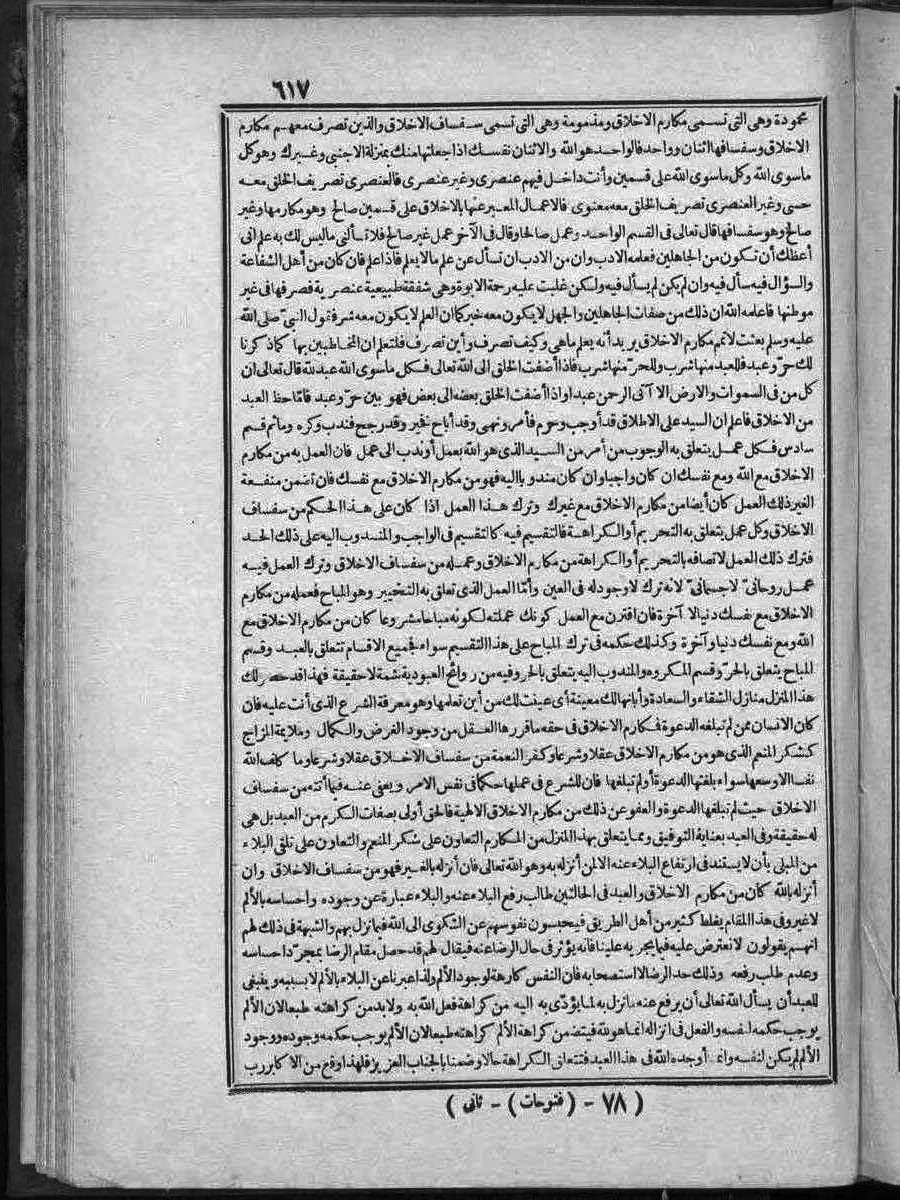 ٦١٧
محمودة وهى التى تسمى مكارم الاخلاق ومذمومة وهى التى تسمى سفساف الاخلاق والذين تصرف معهم مكارم
الاخلاق وسفسافها اثنان وواحد فالواحد هو الله والاثنان نفسك اذا جعلتها منك بمنزلة الاجنبى وغيرك وهو كل
ماسوى الله وكل ماسوى الله على قسمين وأنت داخل فيهم عنصرى وغير عنصرى فالعنصرى تصريف الخلق معه
حسى وغير العنصرى تصريف الخلق معه معنوى فالاعمال المعبر عنها بالاخلاق على قسمين صالح وهو مكارمها وغير
صالح وهو سفسافها قال تعالى فى القسم الواحد وعمل صالحا وقال فى الآخر عمل غير صالح فلا تسألنى ماليس لك به علم انى
أعظك أن تكون من الجاهلين فعلمه الادب وان من الادب ان تسأل عن علم مالا يعلم فاذا علم فان كان من أهل الشفاعة
والسؤال فيه سأل فيه وان لم يكن لم يسأل فيه ولكن غلبت عليه رحمة الابوة وهى شفقة طبيعية عنصرية فصرفها فى غير
موطنها فاعلمه الله ان ذلك من صفات الجاهلين والجهل لا يكون معه خير كما ان العلم لا يكون معه شر فقول النبى صلى الله
عليه وسلم بعثت لاتمم مكارم الاخلاق يريد أنه يعلم ماهى وكيف تصرف وأين تصرف فلتعلم ان المخاطبين بها كما ذكرنا
لك حرّ وعبد فللعبد منها شرب وللحرّ منها شرب فاذا أضفت الخلق الى الله تعالى فكل ماسوى الله عبد لله قال تعالى ان
كل من فى السموات والارض الا آتى الرحمن عبدا واذا أضفت الخلق بعضه الى بعض فهو بين حرّ وعبد فامّا حظ العبد
من الاخلاق فاعلم ان السيد على الاطلاق قد أوجب وحرم فأمر ونهى وقد أباح فخير وقد رجح فندب وكره وما ثم قسم
سادس فكل عمل يتعلق به الوجوب من أمر من السيد الذى هو الله بعمل أو ندب الى عمل فان العمل به من مكارم
الاخلاق مع الله ومع نفسك ان كان واجبا وان كان مندوبا اليه فهو من مكارم الاخلاق مع نفسك فان تضمن منفعة
الغير ذلك العمل كان أيضا من مكارم الاخلاق مع غيرك وترك هذا العمل اذا كان على هذا الحكم من سفساف
الاخلاق وكل عمل يتعلق به التحريم أو الكراهة فالتقسيم فيه كالتقسيم فى الواجب والمندوب اليه على ذلك الحد
فترك ذلك العمل لاتصافه بالتحريم أو الكراهة من مكارم الاخلاق وعمله من سفساف الاخلاق وترك العمل فيه
عمل روحانىّ لاجسمانىّ لانه ترك لاوجود له فى العين وأمّا العمل الذى تعلق به التخيير وهو المباح فعمله من مكارم
الاخلاق مع نفسك دنيا لا آخرة فان اقترن مع العمل كونك عملته لكونه مباحا مشروعا كان من مكارم الاخلاق مع
الله ومع نفسك دنيا وآخرة وكذلك حكمه فى ترك المباح على هذا التقسيم سواء فجميع الاقسام تتعلق بالعبد وقسم
المباح يتعلق بالحرّ وقسم المكروه والمندوب اليه يتعلق بالحر وفيه من روائح العبودية شمة لاحقيقة فهذا قد حصر لك
هذا المنزل منازل الشقاء والسعادة وأبانها لك معينة أى عينت لك من أين تعلمها وهو معرفة الشرع الذى أنت عليه فان
كان الانسان ممن لم تبلغه الدعوة فمكارم الاخلاق فى حقه ما قررها العقل من وجود الغرض والكمال وملايمة المزاج
كشكر المنعم الذى هو من مكارم الاخلاق عقلا وشرعا وكفر النعمة من سفساف الاخلاق عقلا وشرعا وما كلف الله
نفسا الا وسعها سواء بلغتها الدعوة أو لم تبلغها فان للشرع فى عملها حكما فى نفس الامر ويعفى عنه فيما أتته من سفساف
الاخلاق حيث لم تبلغها الدعوة والعفو عن ذلك من مكارم الاخلاق الالهية فالحق أولى بصفات الكرم من العبد بل هى
له حقيقة وفى العبد بعناية التوفيق ومما يتعلق بهذا المنزل من المكارم التعاون على شكر المنعم والتعاون على تلقى البلاء
من المبلى بأن لا يستند فى ارتفاع البلاء عنه الا لمن أنزله به وهو الله تعالى فان أنزله بالغير فهو من سفساف الاخلاق وان
أنزله بالله كان من مكارم الاخلاق والعبد فى الحالتين طالب رفع البلاء عنه والبلاء عبارة عن وجوده واحساسه بالألم
لاغير وفى هذا المقام يغلط كثير من أهل الطريق فيحبسون نفوسهم عن الشكوى الى الله فيما نزل بهم والشبهة فى ذلك لهم
انهم يقولون لانعترض عليه فيما يجريه علينا فانه يؤثر فى حال الرضا عنه فيقال لهم قد حصل مقام الرضا بمجرّد احساسه
وعدم طلب رفعه وذلك حد الرضا لا استصحابه فان النفس كارهة لوجود الألم ولذا عبرنا عن البلاء بالألم لا بسببه وينبغى
للعبد أن يسأل الله تعالى أن يرفع عنه مانزل به لما يؤدّى به اليه من كراهة فعل الله به ولا بد من كراهته طبعا لان الألم
يوجب حكمه لنفسه والفعل فى انزاله انما هو لله فيتضمن كراهة الألم كراهته طبعا لان الألم يوجب حكمه وجوده ووجود
الألم لم يكن لنفسه وانما أوجده الله فى هذا العبد فتتعلق الكراهة حالا وضمنا بالجناب العزيز فلهذا وقع من الاكابر رب
( ٧٨ - (فتوحات) - ثانى )